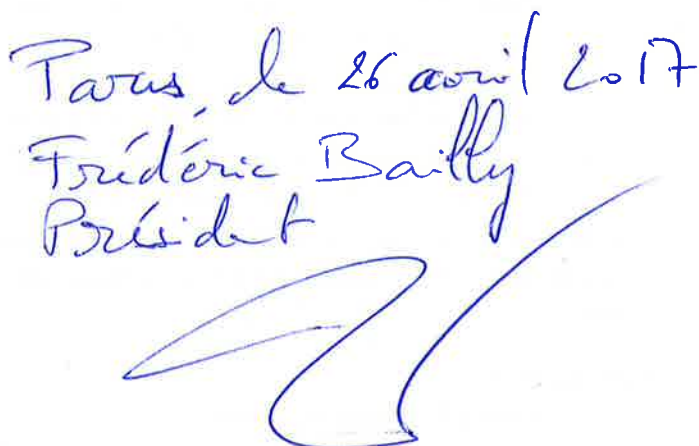 Paris, le 26 avril 2017
Frédéric Bailly
Président